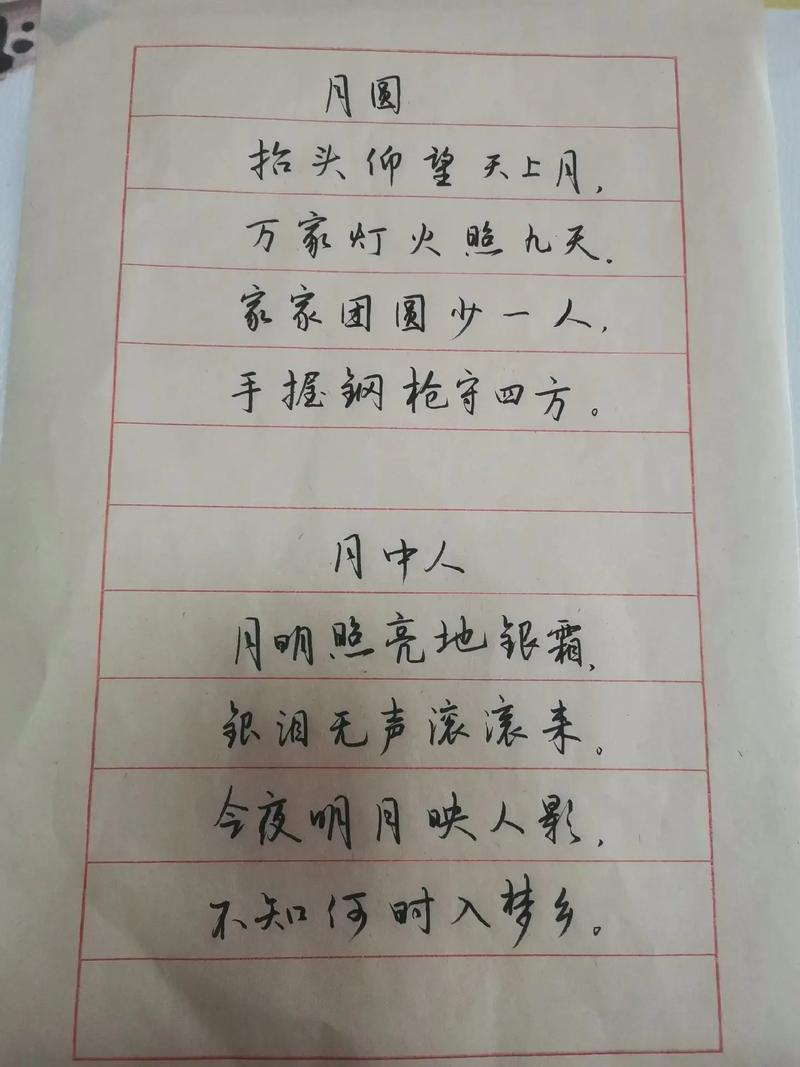 月圆
抬头仰望天上月,
万家灯火照九天.
家家团圆少一人,
手握钢枪守四方。
月中人
月明照亮地银霜,
银泪无声滚滚来。
今夜明月映人影,
不知何时入梦乡。